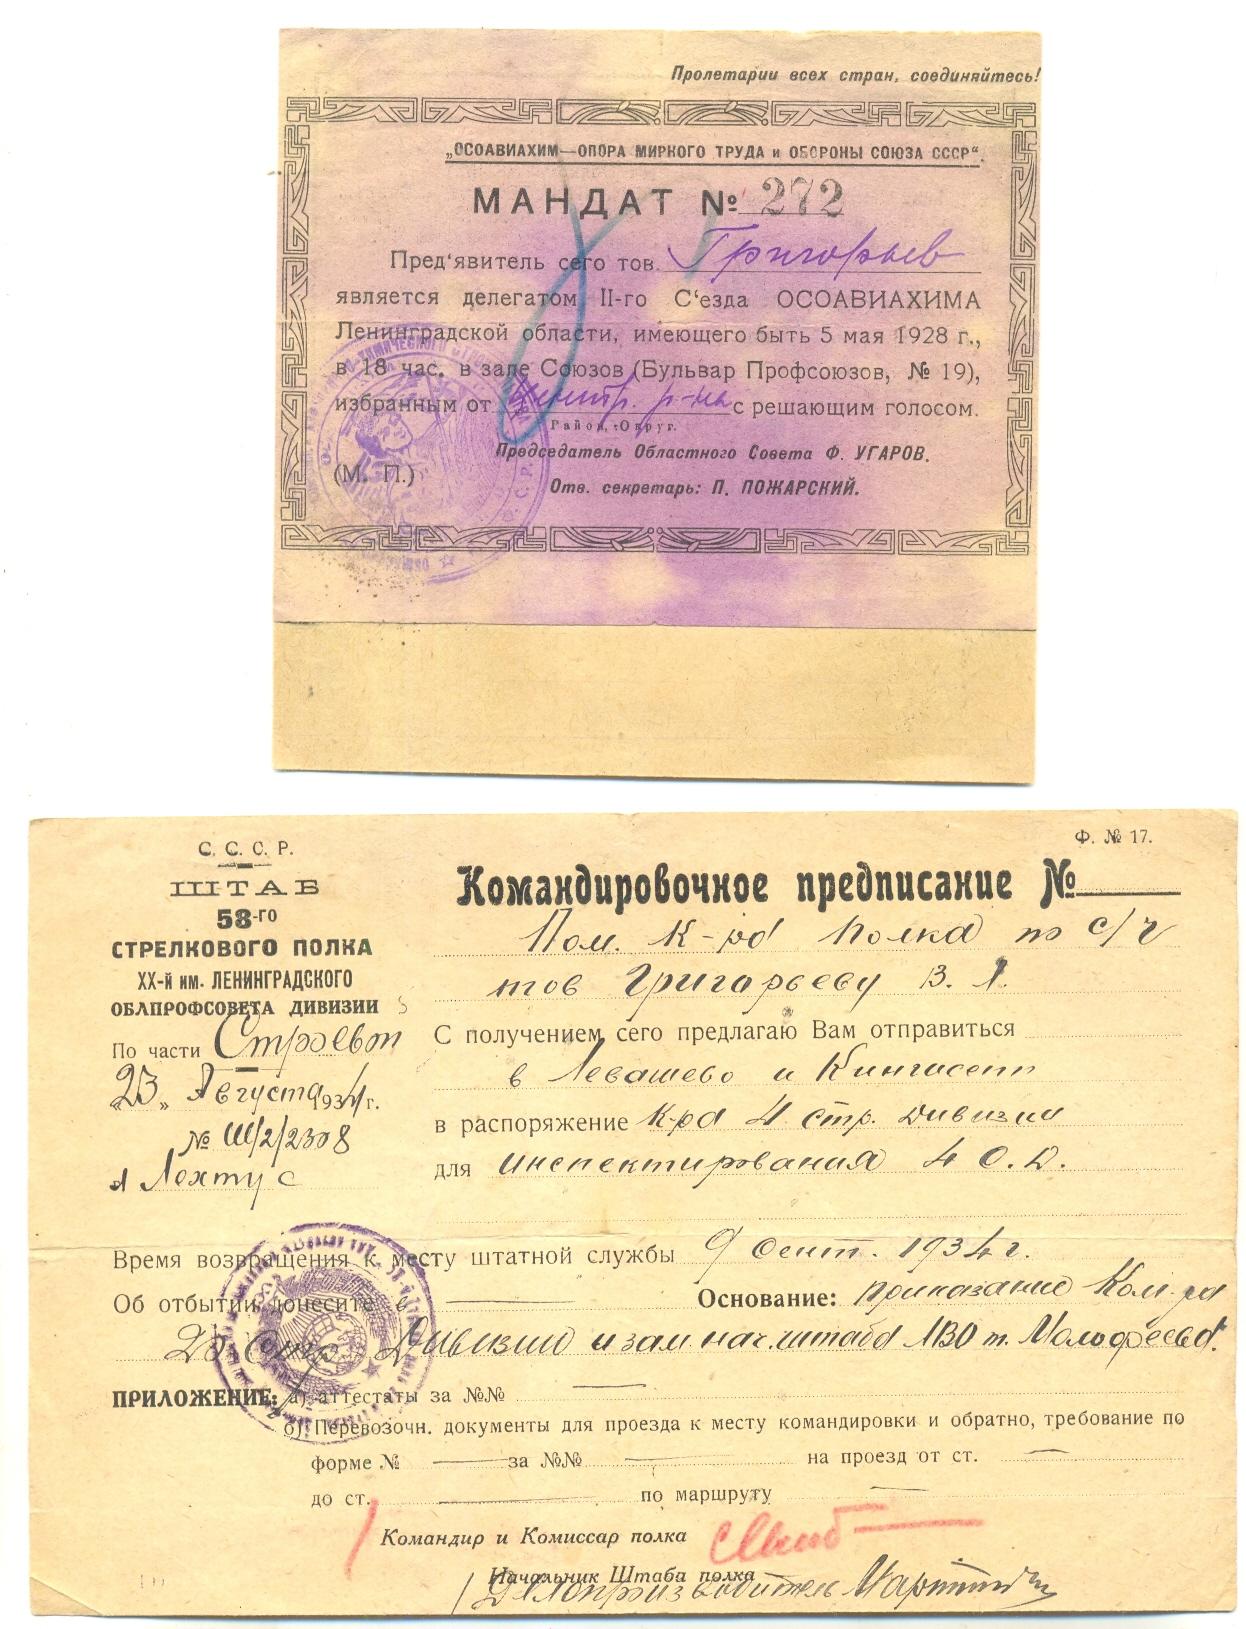 Пролетарии всех стран, соединяйтесь!
„ОСОАВИАХИМ—ОПОРА МИРКОГО ТРУДА и ОБОРОНЫ СОЮЗА СССР“.
МАНДАТ № 272
Пред'явитель сего тов. Григорьев
является делегатом II-го С'езда ОСОАВИАХИМА
Ленинградской области, имеющего быть 5 мая 1928 г.,
в 18 час. в зале Союзов (Бульвар Профсоюзов, № 19),
избранным от Центр. р-на с решающим голосом.
Район, Округ.
Председатель Областного Совета Ф. УГАРОВ.
(М. П.)
Отв. секретарь: П. ПОЖАРСКИЙ.
С. С. С. Р.
ШТАБ
58-го
СТРЕЛКОВОГО ПОЛКА
XX-й им. ЛЕНИНГРАДСКОГО
ОБЛПРОФСОВЕТА ДИВИЗИИ
По части Строевой
„23„ Августа 1934 г.
№ Ш/2/2308
Лехтус
Ф. № 17.
Командировочное предписание №
Пом. К-ра полка по с/ч
тов Григорьеву В.
С получением сего предлагаю Вам отправиться
в Левашево и Кингисепп
в распоряжение К-ра 4 стр. дивизии
для инспектирования 4 О.Д.
Время возвращения к месту штатной службы 9 сент. 1934 г.
Об отбытии донесите в
Основание: приказание Ком-ра
20 стр. Дивизии и зам. нач. штаба ЛВО т. Малофеева.
ПРИЛОЖЕНИЕ: а) аттестаты за №№
б) Перевозочн. документы для проезда к месту командировки и обратно, требование по
форме № за №№ на проезд от ст.
до ст. по маршруту
Командир и Комиссар полка
Начальник Штаба полка
Делопроизводитель